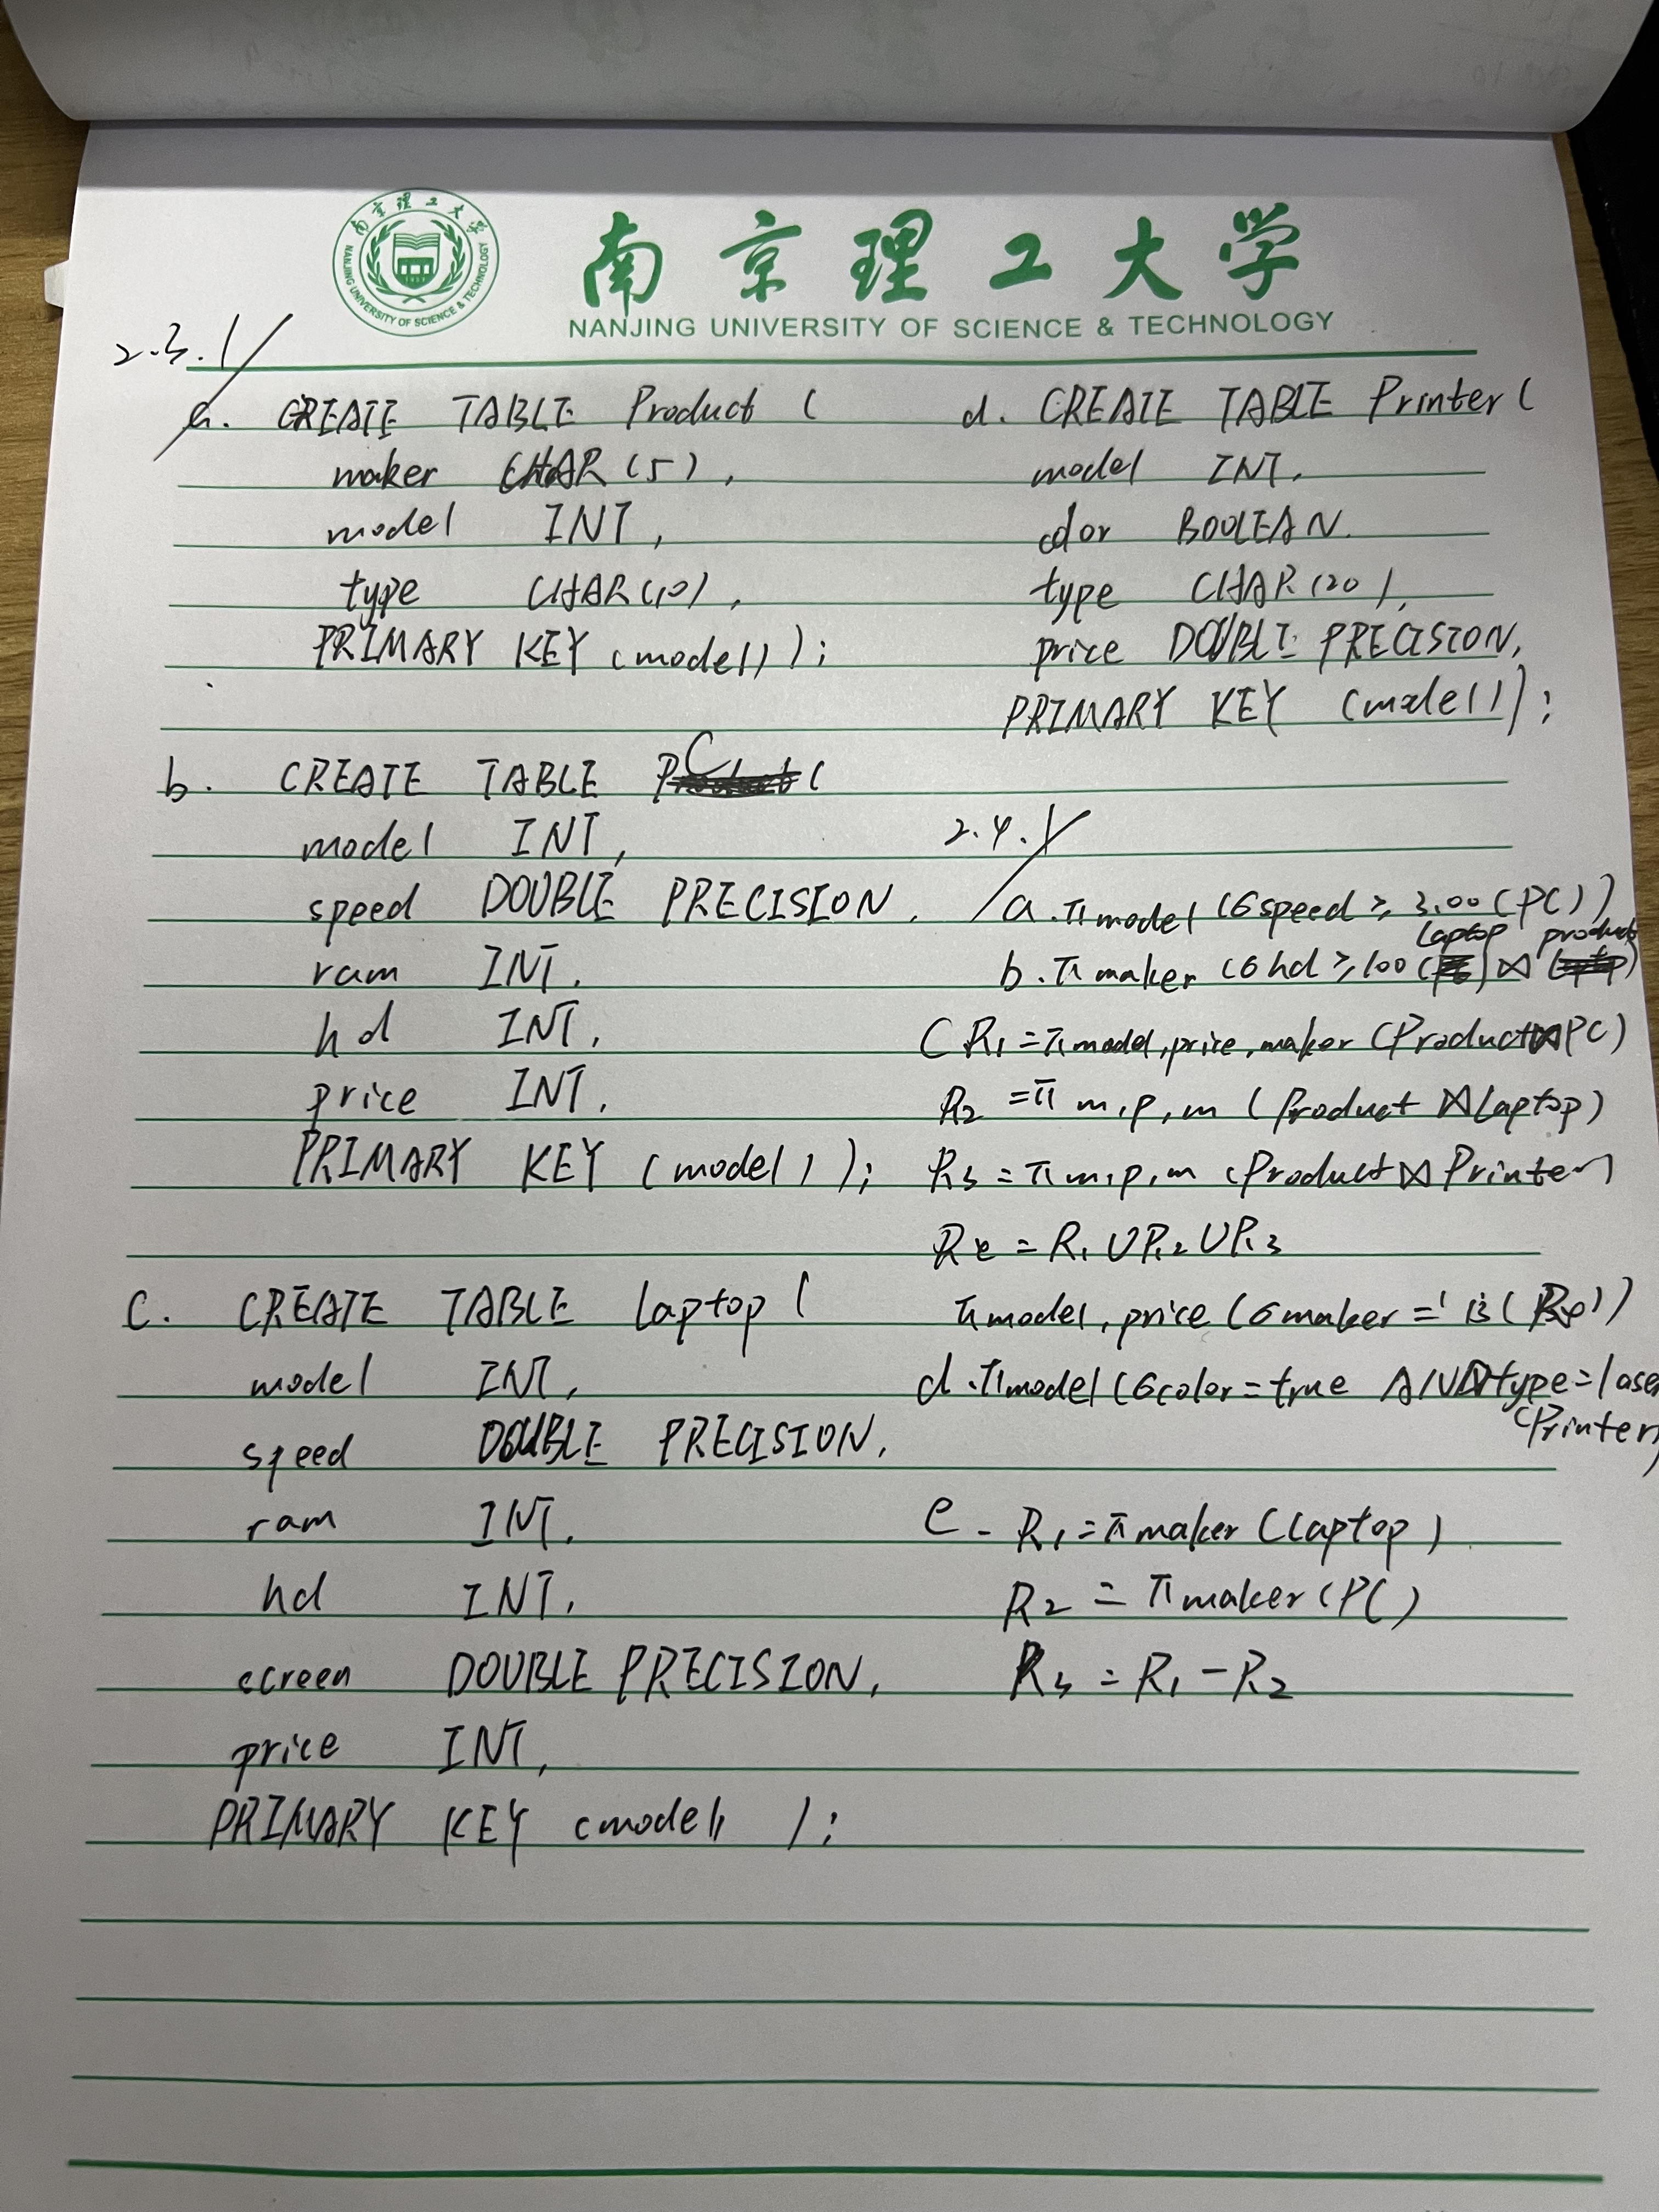 南京理工大学
NANJING UNIVERSITY OF SCIENCE & TECHNOLOGY
南京理工大学
NANJING UNIVERSITY OF SCIENCE & TECHNOLOGY
2.3.1
a. CREATE TABLE Product (
maker CHAR(5),
model INT,
type CHAR(10),
PRIMARY KEY (model));
b. CREATE TABLE PC (
model INT,
speed DOUBLE PRECISION,
ram INT,
hd INT,
price INT,
PRIMARY KEY (model));
c. CREATE TABLE laptop (
model INT,
speed DOUBLE PRECISION,
ram INT,
hd INT,
screen DOUBLE PRECISION,
price INT,
PRIMARY KEY (model));
d. CREATE TABLE Printer (
model INT,
color BOOLEAN,
type CHAR(20),
price DOUBLE PRECISION,
PRIMARY KEY (model));
2.4.1
a. π model (σ speed ≥ 3.00 (PC))
b. π maker (σ hd ≥ 100 (laptop) ⋈ product)
C R1 = π model, price, maker (Product ⋈ PC)
R2 = π m, p, m (Product ⋈ Laptop)
R3 = π m, p, m (Product ⋈ Printer)
= R1 ∪ R2 ∪ R3
π model, price (σ maker = 'B (
d. π model (σ color = true AND type = laser (Printer)
e. R1 = π maker (laptop)
R2 = π maker (PC)
R3 = R1 - R2